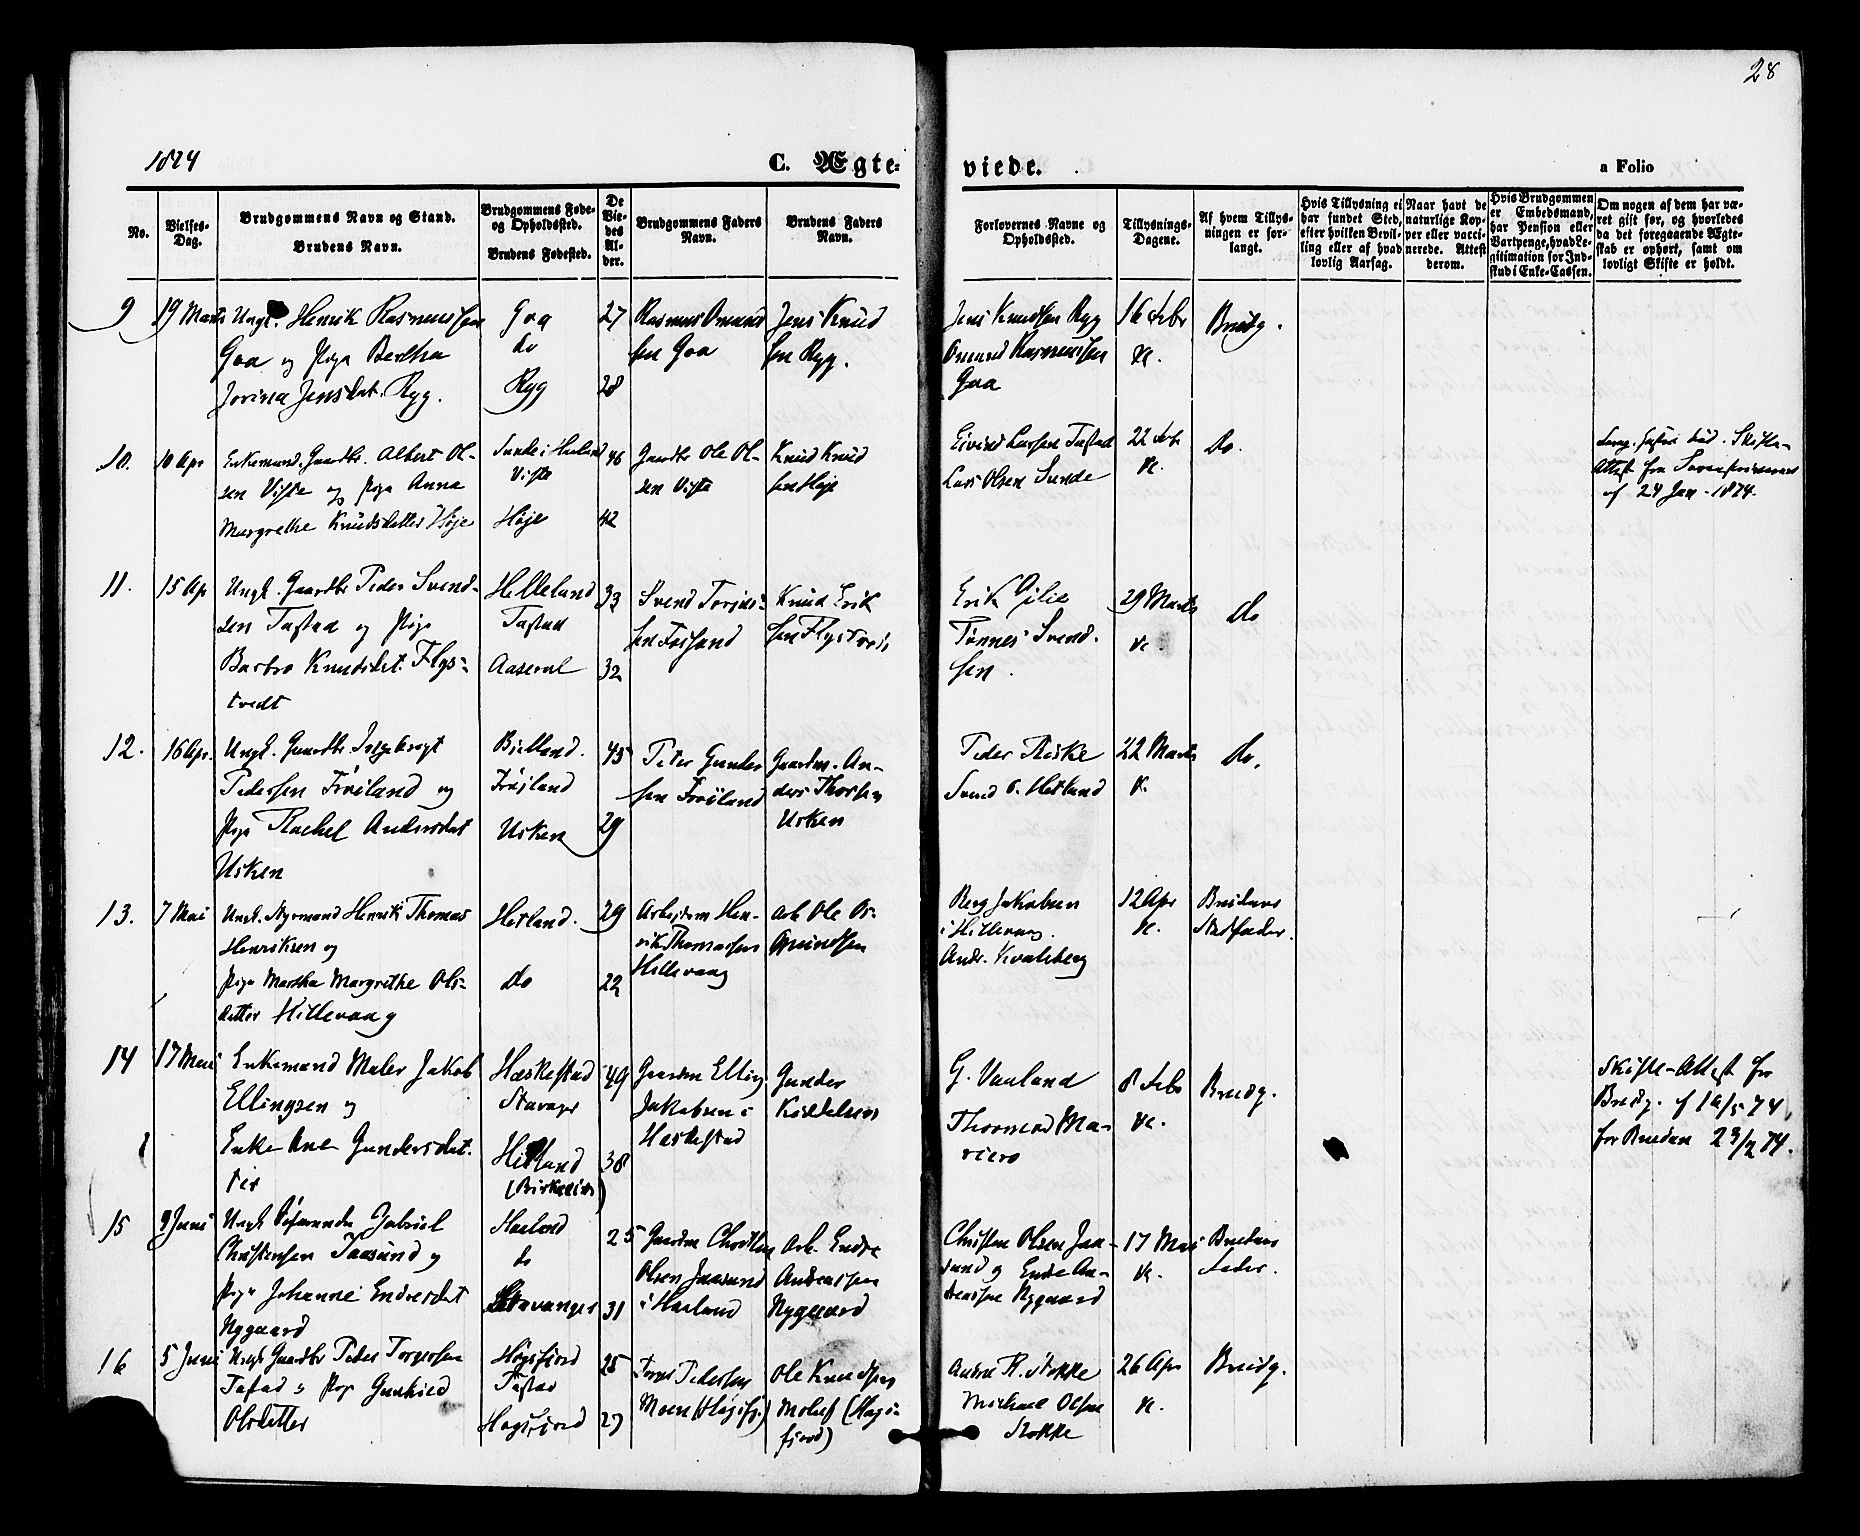 28
1874
C. Ægte-
viede.
a Folio
No.
Vielses-
Dag.
Brudgommens Navn og Stand.
Brudens Navn.
Brudgommens Føde-
og Opholdssted.
Brudens Fødested.
De
Vie-
des
Al-
der.
Brudgommens Faders
Navn.
Brudens Faders
Navn.
Forlovernes Navne og
Opholdssted.
Tillysnings-
Dagene.
Af hvem Tillys-
ningen er for-
langt.
Hvis Tillysning ei
har fundet Sted,
efter hvilken Bevil-
ling eller af hvad
lovlig Aarsag.
Naar havt de
naturlige Kop-
per eller vacci-
nerede. Attest
derom.
Hvis Brudgommen
er Embedsmand,
har Pension eller
Vartpenge, hvad Le-
gitimation for Ind-
skud i Enke-Cassen.
Om nogen af dem har væ-
ret gift før, og hvorledes
da det foregaaende Ægte-
skab er ophørt, samt om
lovligt Skifte er holdt.
9
19 Marts
Ungk. Henrik Rasmussen
Goa og Pige Bertha
Jorina Jensdat. Ryg.
Goa
do
Ryg
27
28
Rasmus Omund
sen Goa
Jens Knud
sen Ryg.
Jens Knudsen Ryg
Omund Rasmussen
Goa
16 Febr
&c.
Brudg.
10.
10 Apr
Enkemand, Gaardbr. Albert Ol-
sen Viste og Pige Anna
Margrethe Knudsdatter Høje
Sunde i Hetland
Viste
Høje
46
42
Gaardbr Ole Ol-
sen Viste
Knud Knud
sen Høje
Eivind Larsen Tastad
Lars Olsen Sunde
22 Febr
&c.
Do.
død. Skifte-
Attest fra Sorenskriveren
af 24 Jan. 1874.
11.
15 Apr
Ungk. Gaardbr Peder Svend-
sen Tastad og Pige
Barbro Knudsdat. Flys-
tvedt
Helleland
Tastad
Aaseral
33
32
Svend Torjus-
sen
Knud Erik
sen Flystvedt
Erik Gilie
Tønnes Svend-
sen.
29 Marts
&c.
do
12.
16 Apr.
Ungk. Gaardbr. Ingebregt
Pedersen Frøiland og
Pige Rachel Andersdat
Usken
Bjelland.
Frøiland
Usken
45
29
Peter Gunder
sen Frøiland
Gaardm. An-
ders Thorsen
Usken
Peder Riske
Svend O. Hetland
22 Marts
&c.
do.
13.
7 Mai
Ungk. Styrmand Henrik Thomas
Henriksen og
Pige Martha Margrethe Ols-
datter Hillevaag
Hetland.
do
29
22
Arbejdsm Hen-
rik Thomassen
Hillevaag
Arb Ole As-
gmundsen
Berg Jakobsen
i Hillevaag.
Andr. Kvaleberg
12 Apr
&c.
Brudens
Stedfader.
14
17 Mai
Enkemand Maler Jakob
Ellingsen og
Enke Ane Gundersdat
ter
Haskestad
Stavanger
Hetland
49
38
Gaardm Elling
Jakobsen i
Haskestad
Gunder
G. Vauland
Thormod Ma-
riero
8 Febr
&c.
Brudg.
Skifte-Attest for
Brudg. af 16/5 74,
for Bruden 23/2 74.
15
3 Juni
Ungk. Gabriel
Christensen Jaasund og
Pige Johanne Endresdat
Nygaard
Haaland
do
Stavanger
25
31
Gaardm Christen
Olsen Jaasund
i Haaland
Arb. Endre
Andreassen
Nygaard
Christen Olsen Jaa-
sund og Endre An-
dreassen Nygaard
17 Mai
&c.
Brudens
Fader.
16
5 Juni
Ungk Gaardbr Peder Torgersen
Tastad & Pige Gunhild
Olsdatter
Høgsfjord
Tastad
Høgsfjord
25
27
Pedersen
Moen (Høgsfj.)
Ole Knudsen
(Høgs-
fjord)
Andre R. Stokke
Michael Olsen
Stokke
26 Apr
&c.
Brudg.